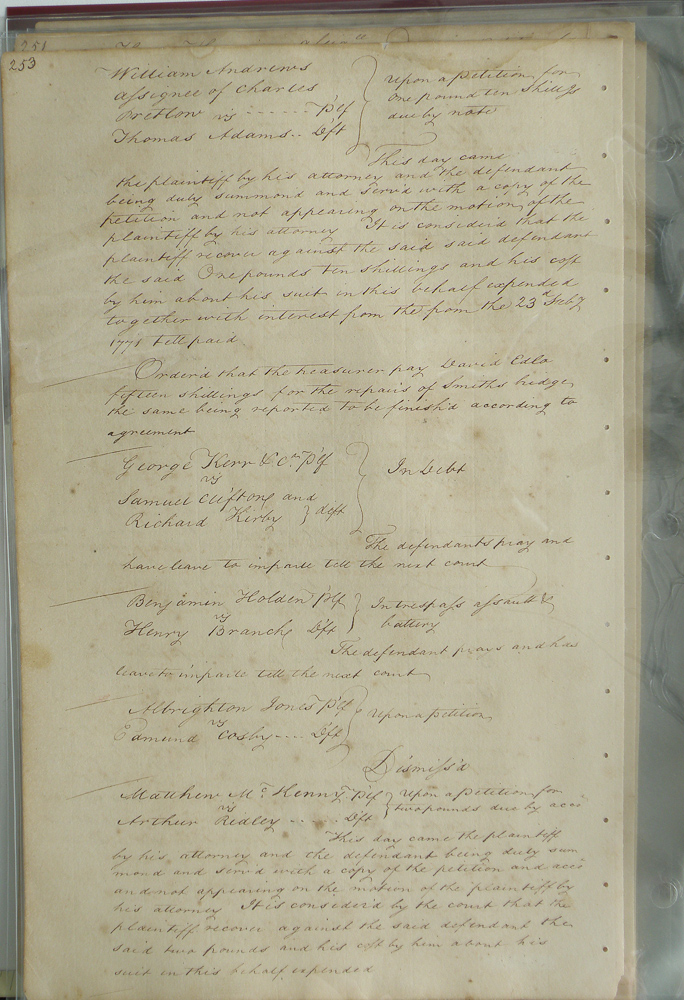 251
253
William Andrews
assignee of Charles
Pretlow vs - - - - - - Plf
Thomas Adams .. Dft
Upon a petition for
One pound ten shillgs
due by note
This day came
the plaintiff by his attorney and the defendant
being duly summond and serv'd with a copy of the
petition and not appearing on the motion of the
plaintiff by his attorney It is consider'd that the
plaintiff recover against the said said defendant
the said One pounds ten shillings and his cost
by him about his suit in this behalf expended
together with interest from the from the 23d Feby
1771 till paid
Order'd that the treasurer pay David Edlo
fifteen shillings for the repairs of Smiths bridge
the same being reported to be finish'd according to
agreement
George Kerr & Co. Plf
vs
Samuel Cliftong and
Richard Kirby } deft
In Debt
The defendants pray and
have leave to imparle till the next court
Benjamin Holden Plf
vs
Henry Branch Dft
In trespass assault &
battery
The defendant prays and has
leave to imparle till the next court
Albrighton Jones Plf
vs
Edmund Cosby - - - Dft
Upon a petition
Dismiss'd
Matthew McKenny Plf
vs
Arthur Ridley - - - . Dft
Upon a petition for
two pounds due by acct
This day came the plaintiff
by his attorney and the defendant being duly sum
mond and serv'd with a copy of the petition and acct
and not appearing on the motion of the plaintiff by
his attorney It is consider'd by the court that the
plaintiff recover against the said defendant the
said two pounds and his cost by him about his
suit in this behalf expended